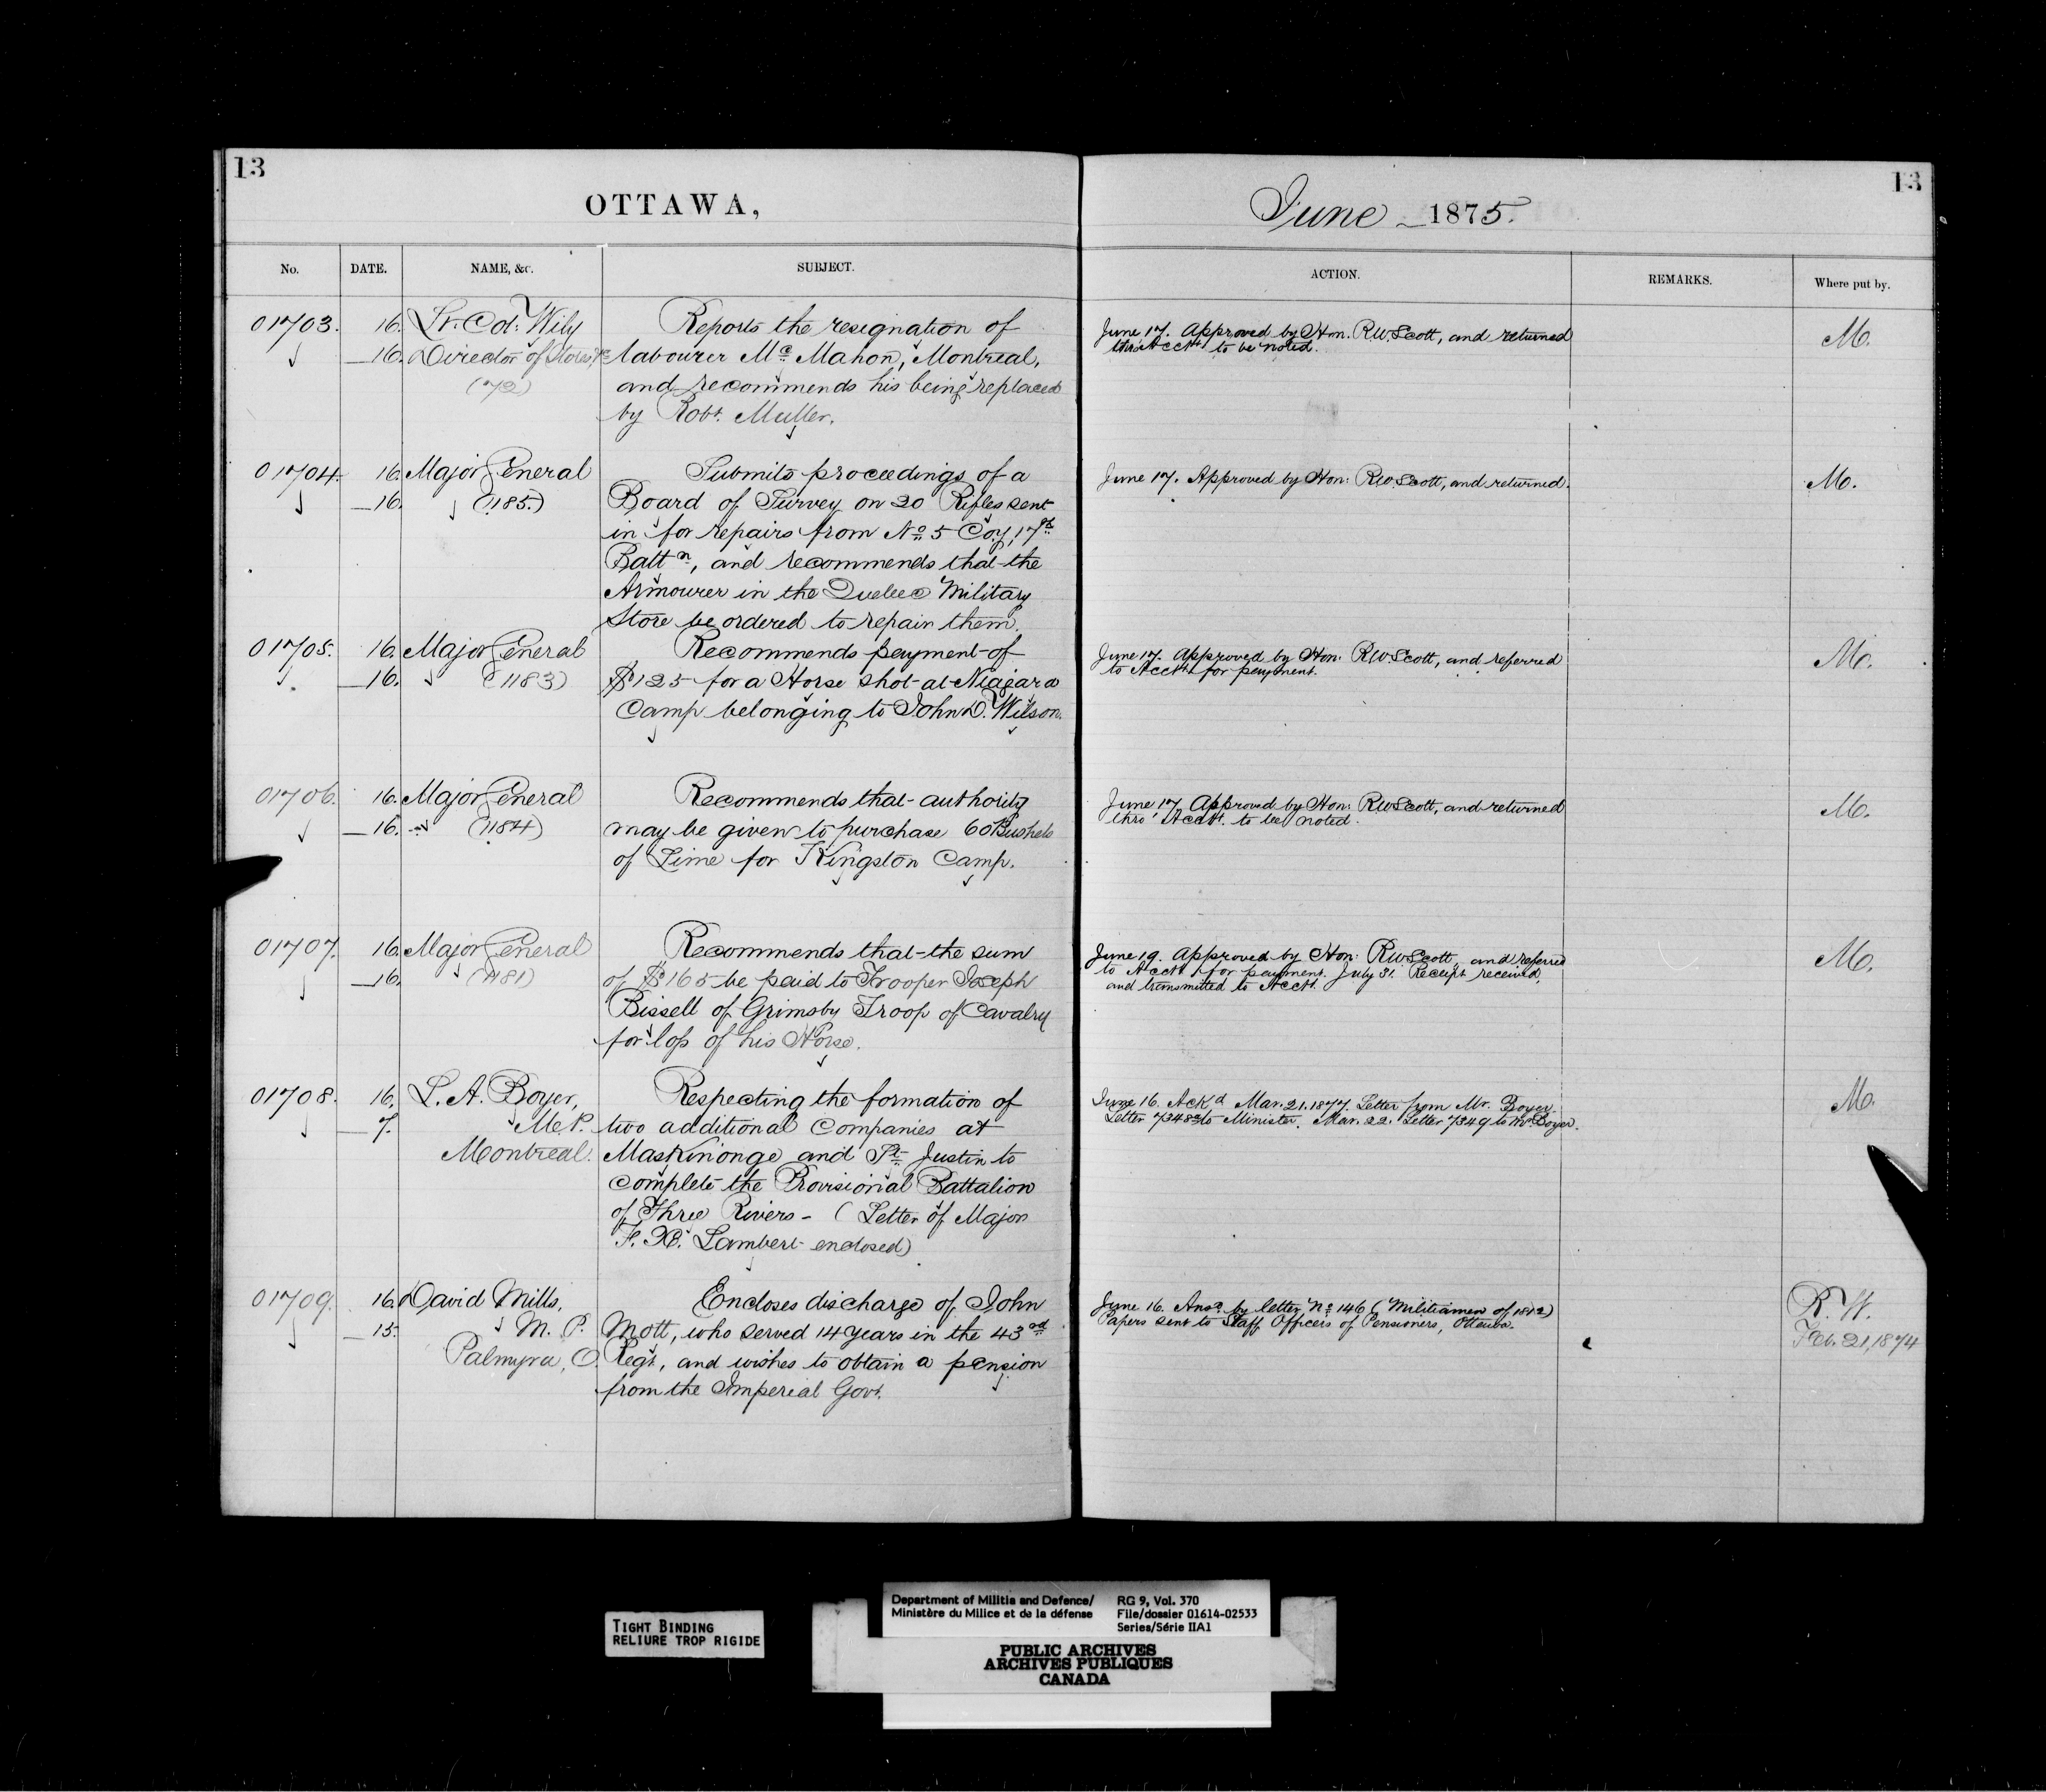 13
OTTAWA,
No. DATE. NAME, &c. SUBJECT.
01703. 16. Lt. Col: Wily Reports the resignation of
16. Director of Stores labourer Mc Mahon, Montreal,
(72) and recommends his being replaced
by Robt. Muller.
01704. 16. Major General Submits proceedings of a
16. (1185.) Board of Survey on 20 Rifles sent
in for repairs from No 5 Coy, 17th
Battn, and recommends that the
Armourer in the Quebec Military
Store be ordered to repair them.
01705. 16. Major General Recommends payment of
16. (1183) $125 for a Horse shot at Niagara
Camp belonging to John D. Wilson.
01706. 16. Major General Recommends that authority
16. (1184) may be given to purchase 60 Bushels
of Lime for Kingston Camp.
01707. 16. Major General Recommends that the sum
16. (1181) of $165 be paid to Trooper Joseph
Bissell of Grimsby Troop of Cavalry
for loss of his Horse.
01708. 16. L. A. Boyer, Respecting the formation of
7. M.P. two additional Companies at
Montreal. Maskinonge and St. Justin to
complete the Provisional Battalion
of Three Rivers - (Letter of Major
F. X. Lambert enclosed)
01709. 16. David Mills, Encloses discharge of John
15. M. P. Mott, who served 14 years in the 43rd
Palmyra, O. Regt, and wishes to obtain a pension
from the Imperial Govt.
13
June 1875.
ACTION. REMARKS. Where put by.
June 17. Approved by Hon. RW Scott, and returned M.
thro' Acct. to be noted.
June 17. Approved by Hon: RW Scott, and returned. M.
June 17. Approved by Hon: RW Scott, and referred M.
to Acct. for payment.
June 17. Approved by Hon: RW Scott, and returned M.
thro' Acct. to be noted.
June 19. Approved by Hon: RW Scott, and referred M.
to Acct. for payment. July 31. Receipt received,
and transmitted to Acct.
June 16. Ackd Mar. 21. 1877. Letter from Mr. Boyer. M.
Letter 7348 to Minister. Mar. 22. Letter 7349 to Mr. Boyer.
June 16. Ansd. by letter No 146 (Militiamen of 1812) R. W.
Papers sent to Staff Officers of Pensioners, Ottawa. Feb. 21, 1874
TIGHT BINDING
RELIURE TROP RIGIDE
Department of Militia and Defence/ RG 9, Vol. 370
Ministère du Milice et de la défense File/dossier 01614-02533
Series/Série IIA1
PUBLIC ARCHIVES
ARCHIVES PUBLIQUES
CANADA